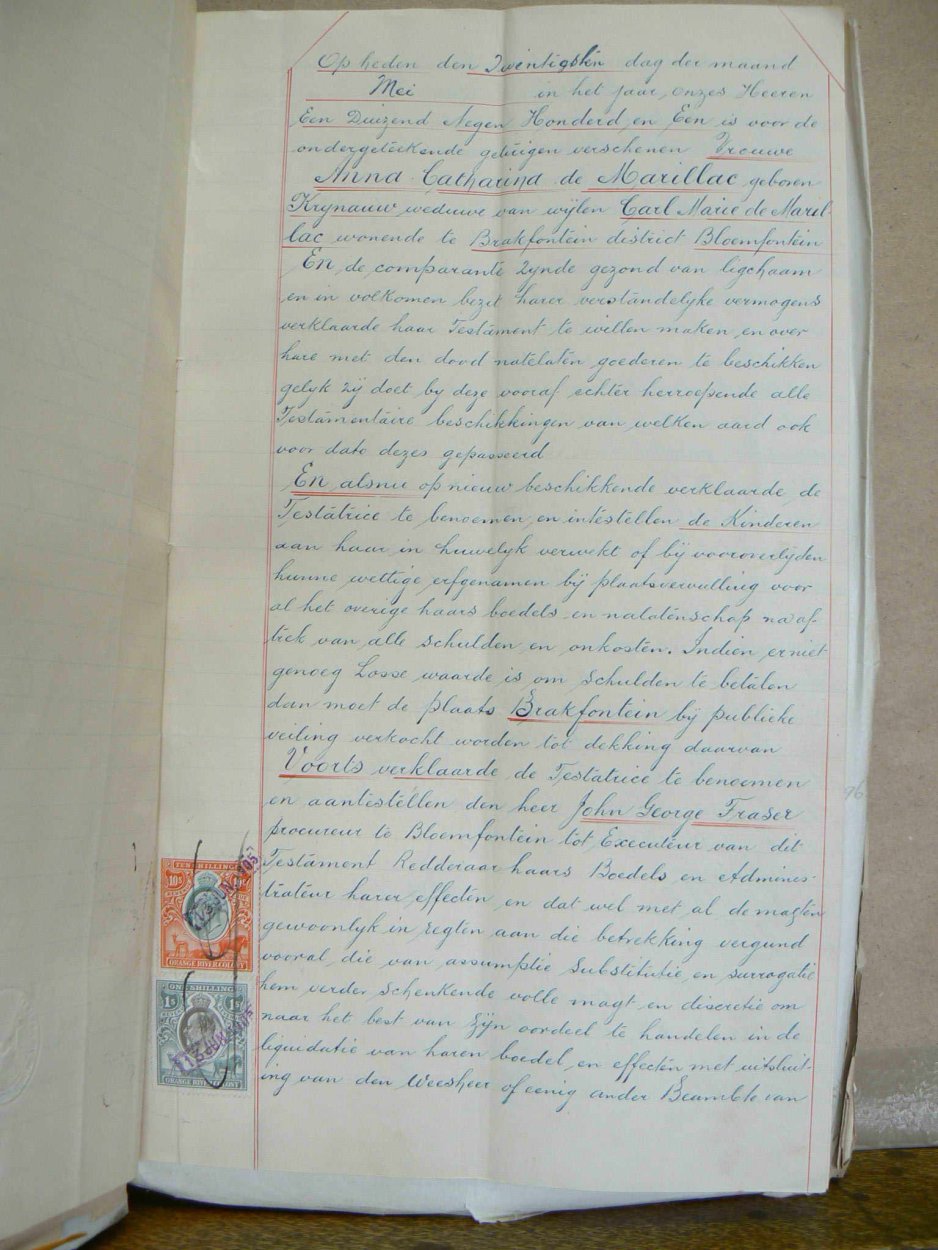 Op heden den Twintigsten dag der maand
Mei in het jaar onzes Heeren
Een Duizend Negen Honderd en Een is voor de
ondergeteekende getuigen verschenen Vrouwe
Anna Catharina de Marillac geboren
Krynauw weduwe van wijlen Carl Marie de Maril-
lac wonende te Brakfontein district Bloemfontein
En de comparante zynde gezond van ligchaam
en in volkomen bezit harer verstandelyke vermogens
verklaarde haar Testament te willen maken en over
hare met den dood natelaten goederen te beschikken
gelyk zij doet by deze vooraf echter herroepende alle
Testamentaire beschikkingen van welken aard ook
voor dato dezes gepasseerd
En alsnu op nieuw beschikkende verklaarde de
Testatrice te benoemen en intestellen de Kinderen
aan haar in huwelyk verwekt of bij vooroverlyden
hunne wettige erfgenamen bij plaatsvervulling voor
al het overige haars boedels en nalatenschap na af-
trek van alle schulden en onkosten. Indien er niet
genoeg Losse waarde is om schulden te betalen
dan moet de plaats Brakfontein bij publieke
veiling verkocht worden tot dekking daarvan
Voorts verklaarde de Testatrice te benoemen
en aantestellen den heer John George Fraser
procureur te Bloemfontein tot Executeur van dit
Testament Redderaar haars Boedels en Adminis-
trateur harer effecten en dat wel met al de magten
gewoonlyk in regten aan die betrekking vergund
vooral die van assumptie substitutie en surrogatie
hem verder schenkende volle magt en discretie om
naar het best van zijn oordeel te handelen in de
liquidatie van haren boedel en effecten met uitsluit-
ing van den Weesheer of eenig ander Beambte van
TEN SHILLINGS
10s 10s
ORANGE RIVER COLONY
ONE SHILLING
1s 1s
ORANGE RIVER COLONY
96